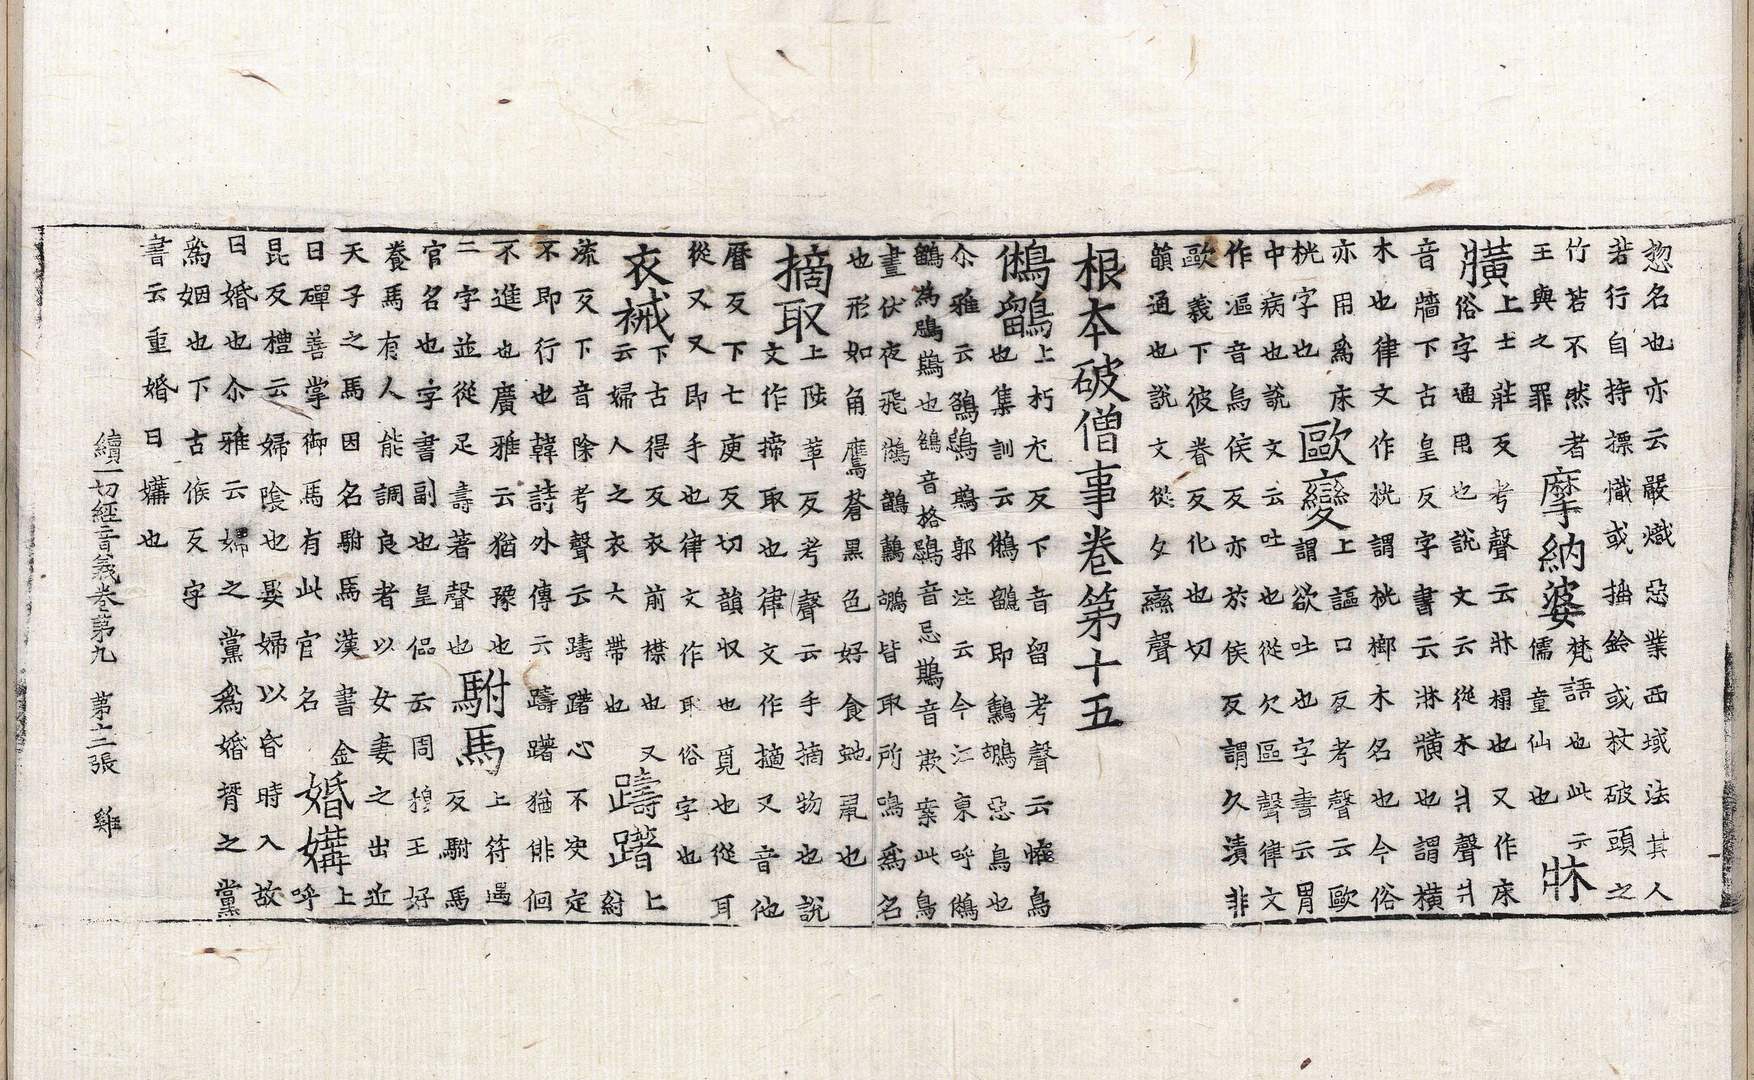 惣名也亦云嚴熾惡業西域法其人
若行自持摽幟或搖鈴或杖破頭之
竹若不然者
王與之罪
摩納婆
梵語也此云
儒童仙也
牀
𤖖
上士莊反考聲云牀榻也又作床
俗字通用也說文云從木爿聲爿
音牆下古皇反字書云牀𤖖也謂橫
木也律文作桄謂桄榔木名也今俗
亦用爲床
桄字也
歐變
上謳口反考聲云歐
謂欲吐也字書云胃
中病也說文云吐也從欠區聲律文
作漚音烏侯反亦於侯反謂久漬非
歐義下彼眷反化也切
韻通也說文從攵䜌聲
根本破僧事卷第十五
鵂鶹
上朽尤反下音留考聲云恠鳥
也集訓云鵂鶹即鸋鴂惡鳥也
尒雅云鵅鵋䳢郭注云今江東呼鵂
鶹為鵋䳢也鵅音格鵋音忌䳢音欺案此鳥
晝伏夜飛鵂鶹鸋鴂皆取所鳴爲名
也形如角鷹蒼黑色好食虵鼠也
摘取
上陟革反考聲云手摘物也說
文作搦取也律文作擿又音他
曆反下七庾反切韻収也覓也從耳
從又又即手也律文作耴俗字也
衣裓
下古得反衣前襟也又
云婦人之衣大帶也
躊躇
上
紂
流反下音除考聲云躊躇心不決定
不即行也韓詩外傳云躊躇猶俳佪
不進也廣雅云猶豫也
二字並從足壽著聲也
駙馬
上符遇
反駙馬
官名也字書副也皇侶云周穆王好
養馬有人能調良者以女妻之出近
天子之馬因名駙馬漢書金
日磾善掌御馬有此官名
婚媾
上
呼
昆反禮云婦陰也娶婦以昏時入故
曰婚也尒雅云婦之黨爲婚壻之黨
爲姻也下古候反字
書云重婚曰媾也
續一切經音義卷第九 第十二張 雞